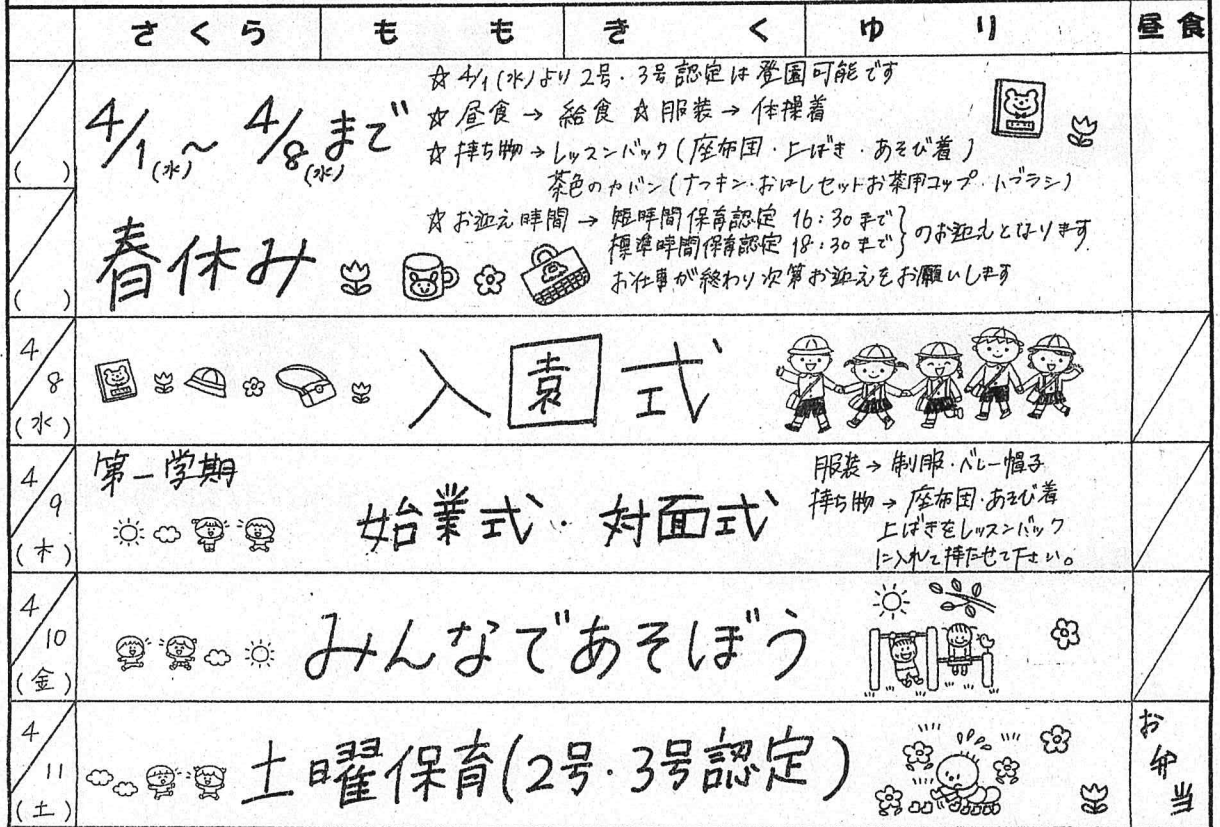 さくら もも きく ゆり 昼食
( )
4/1(水)～4/8(水)まで
☆4/1(水)より2号・3号認定は登園可能です
☆昼食→給食 ☆服装→体操着
☆持ち物→レッスンバック(座布団・上ばき・あそび着)
茶色のカバン(ナフキン・おはしセットお茶用コップ・ハブラシ)
( )
春休み
☆お迎え時間→短時間保育認定 16:30まで
標準時間保育認定 18:30まで}のお迎えとなります。
お仕事が終わり次第お迎えをお願いします
4/8(水)
入園式
4/9(木)
第一学期
始業式・対面式
服装→制服・ベレー帽子
持ち物→座布団・あそび着
上ばきをレッスンバック
に入れて持たせて下さい。
4/10(金)
みんなであそぼう
4/11(土)
土曜保育(2号・3号認定)
お弁当